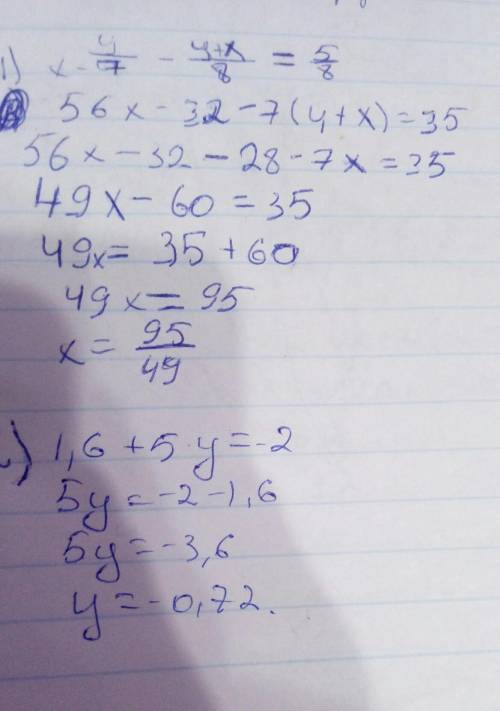 1) x - 4/7 - (4+x)/8 = 5/8
56x - 32 - 7(4+x) = 35
56x - 32 - 28 - 7x = 35
49x - 60 = 35
49x = 35 + 60
49x = 95
x = 95/49
) 1,6 + 5·y = -2
5y = -2 - 1,6
5y = -3,6
y = -0,72.